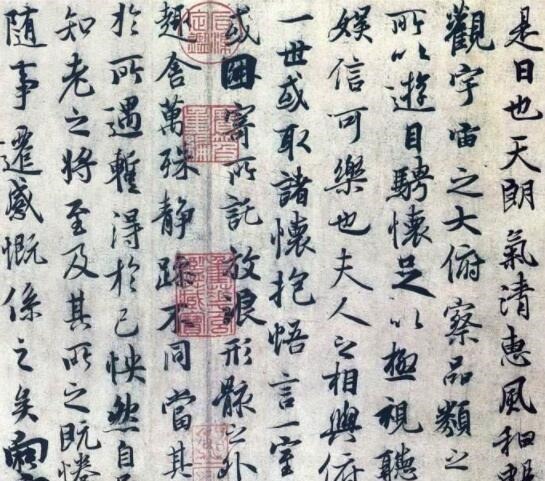 是日也天朗氣清惠風和
觀宇宙之大俯察品類之
所以遊目騁懷足以極視聽
娛信可樂也夫人之相與俯
一世或取諸懷抱悟言一室
或因寄所託放浪形骸之外
趣舍萬殊静躁不同當其
於所遇暫得於己怏然自
知老之將至及其所之既惓
隨事遷感慨係之矣向